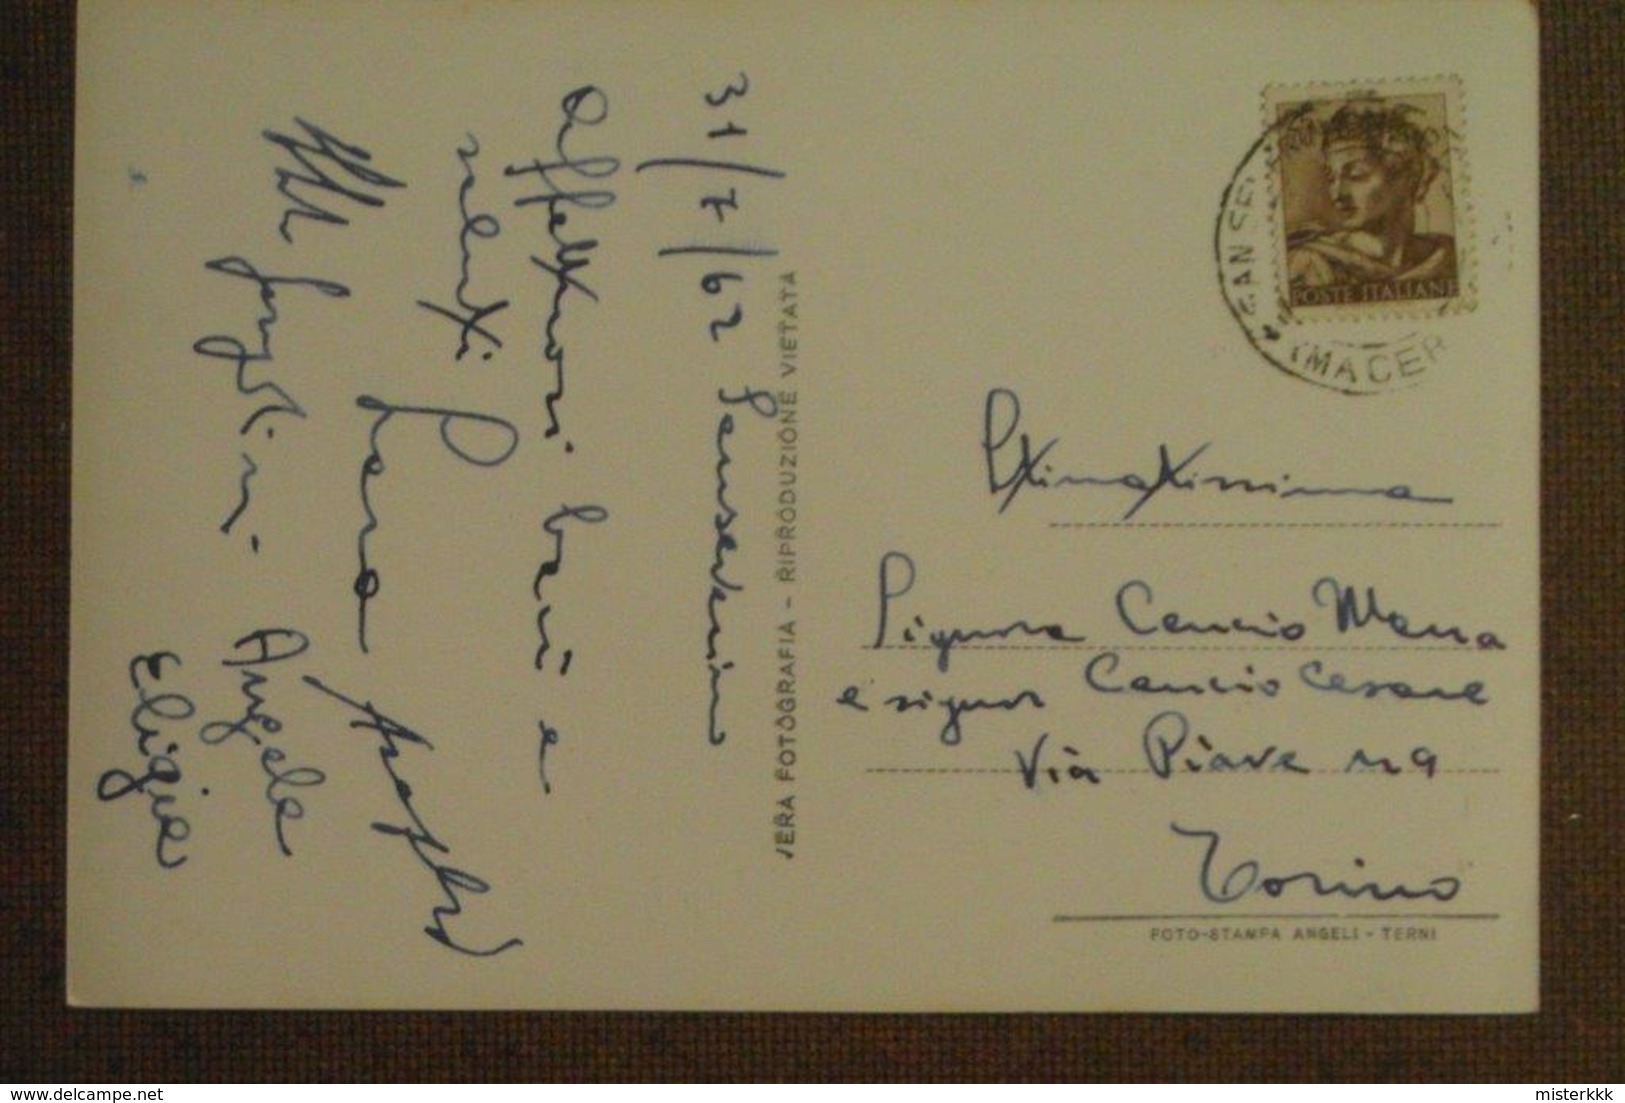 31/7/62 Sanseverino
Affettuosi baci e
saluti
Angela
Eligia
VERA FOTOGRAFIA - RIPRODUZIONE VIETATA
POSTE ITALIANE
SAN SEV
(MACER
Stimatissima
Signora Cancio
e signor Cancio Cesare
Via Piave n 9
Torino
FOTO-STAMPA ANGELI - TERNI
misterkkk